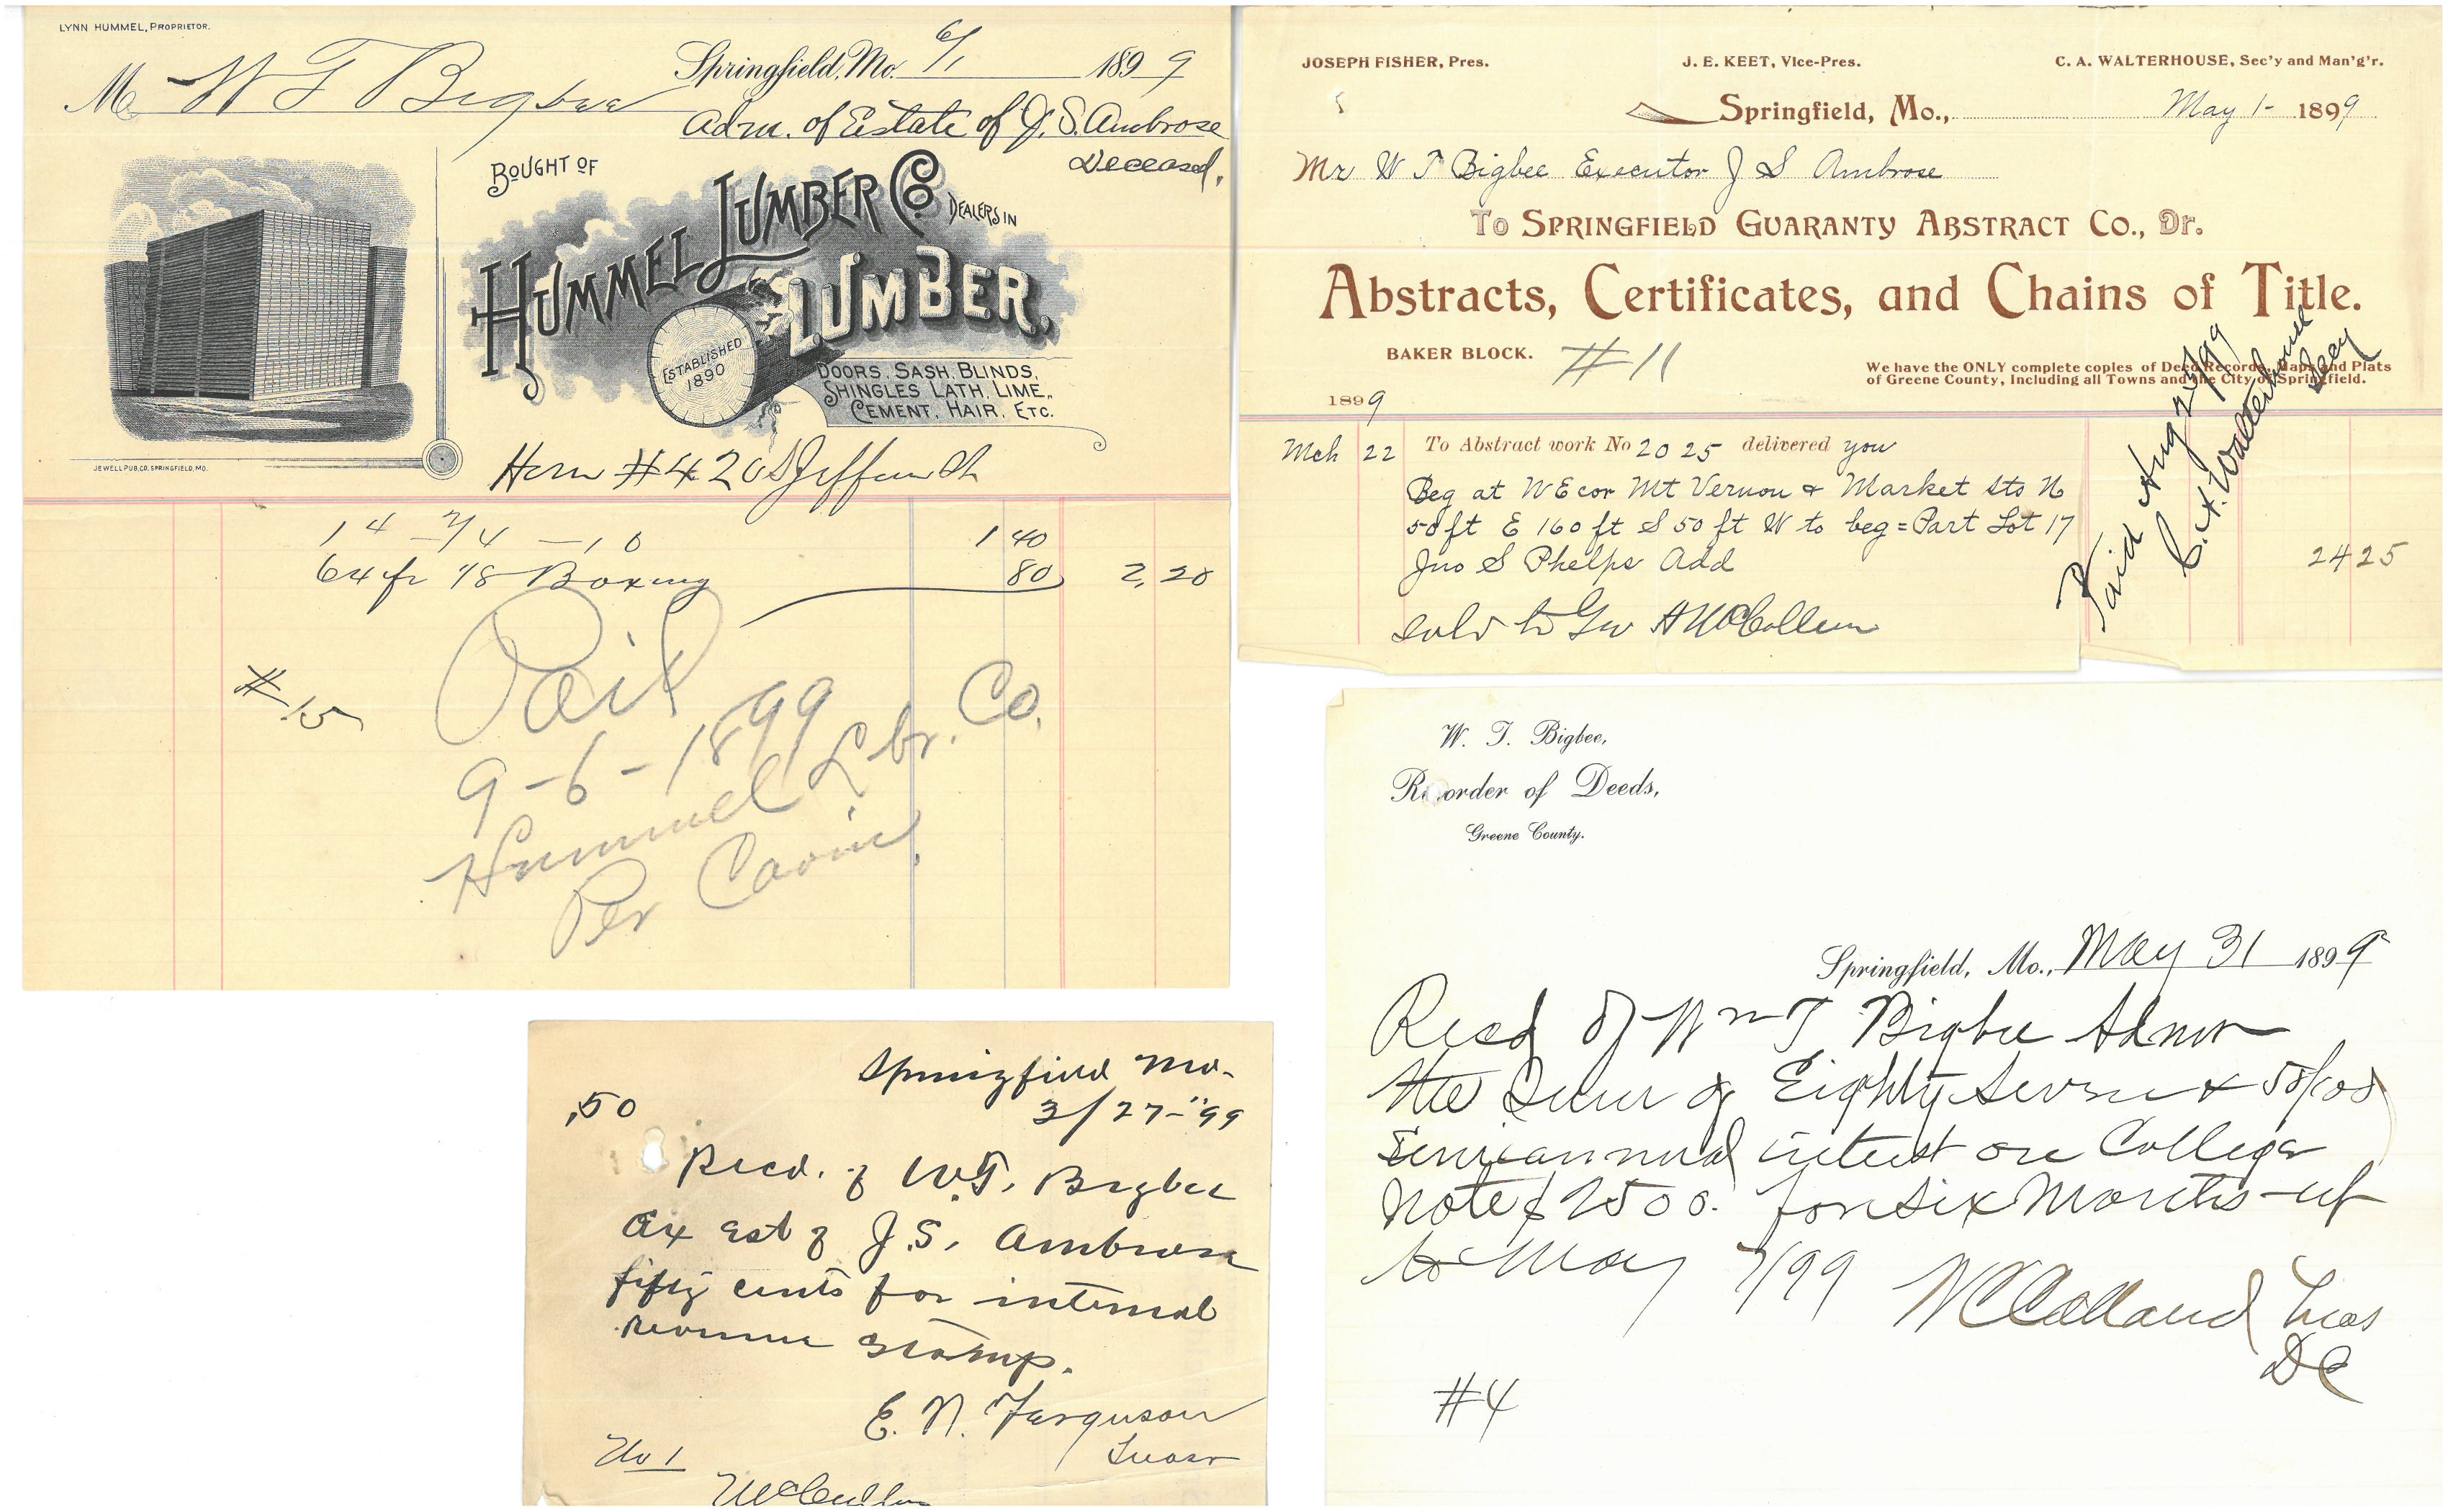 LYNN HUMMEL, PROPRIETOR.
Springfield, Mo. 6/1 1899
M W T Bigbee
Adm. of Estate of J. S. Ambrose
Deceased.
BOUGHT OF
HUMMEL LUMBER CO. DEALERS IN
LUMBER,
ESTABLISHED
1890
DOORS, SASH, BLINDS,
SHINGLES, LATH, LIME,
CEMENT, HAIR, ETC.
JEWELL PUB. CO. SPRINGFIELD, MO.
#420 S Jefferson
14 2/4 - 16 1 40
64 ft 1/8 Boxing 80 2.20
#15
Paid
9-6-1899
Hummel Lbr. Co.
Per
JOSEPH FISHER, Pres. J. E. KEET, Vice-Pres. C. A. WALTERHOUSE, Sec'y and Man'g'r.
Springfield, Mo., May 1- 1899
Mr W T Bigbee Executor J S Ambrose
To SPRINGFIELD GUARANTY ABSTRACT CO., Dr.
Abstracts, Certificates, and Chains of Title.
BAKER BLOCK. #11
We have the ONLY complete copies of Deed Records, Maps and Plats
of Greene County, Including all Towns and the City of Springfield.
1899
Mch 22 To Abstract work No 2025 delivered you
Beg at NE cor Mt Vernon & Market Sts N
50 ft E 160 ft S 50 ft W to beg = Part Lot 17
Jno S Phelps Add 24 25
sold to Geo A McCollum
Paid Aug 99
C. A. Walterhouse
Secy
W. T. Bigbee,
Recorder of Deeds,
Greene County.
Springfield, Mo., May 31 1899
Recd of Wm T Bigbee Admr
the Sum of Eighty Seven & 50/00
Semiannual interest on College
Note $2500. for Six Months up
to May 7/99
Treas
DC
#4
Springfield Mo.
.50 3/27-"99
Recd. of W.T. Bigbee
Ex est of J.S. Ambrose
fifty cents for internal
revenue stamp.
E. N. Ferguson
No 1